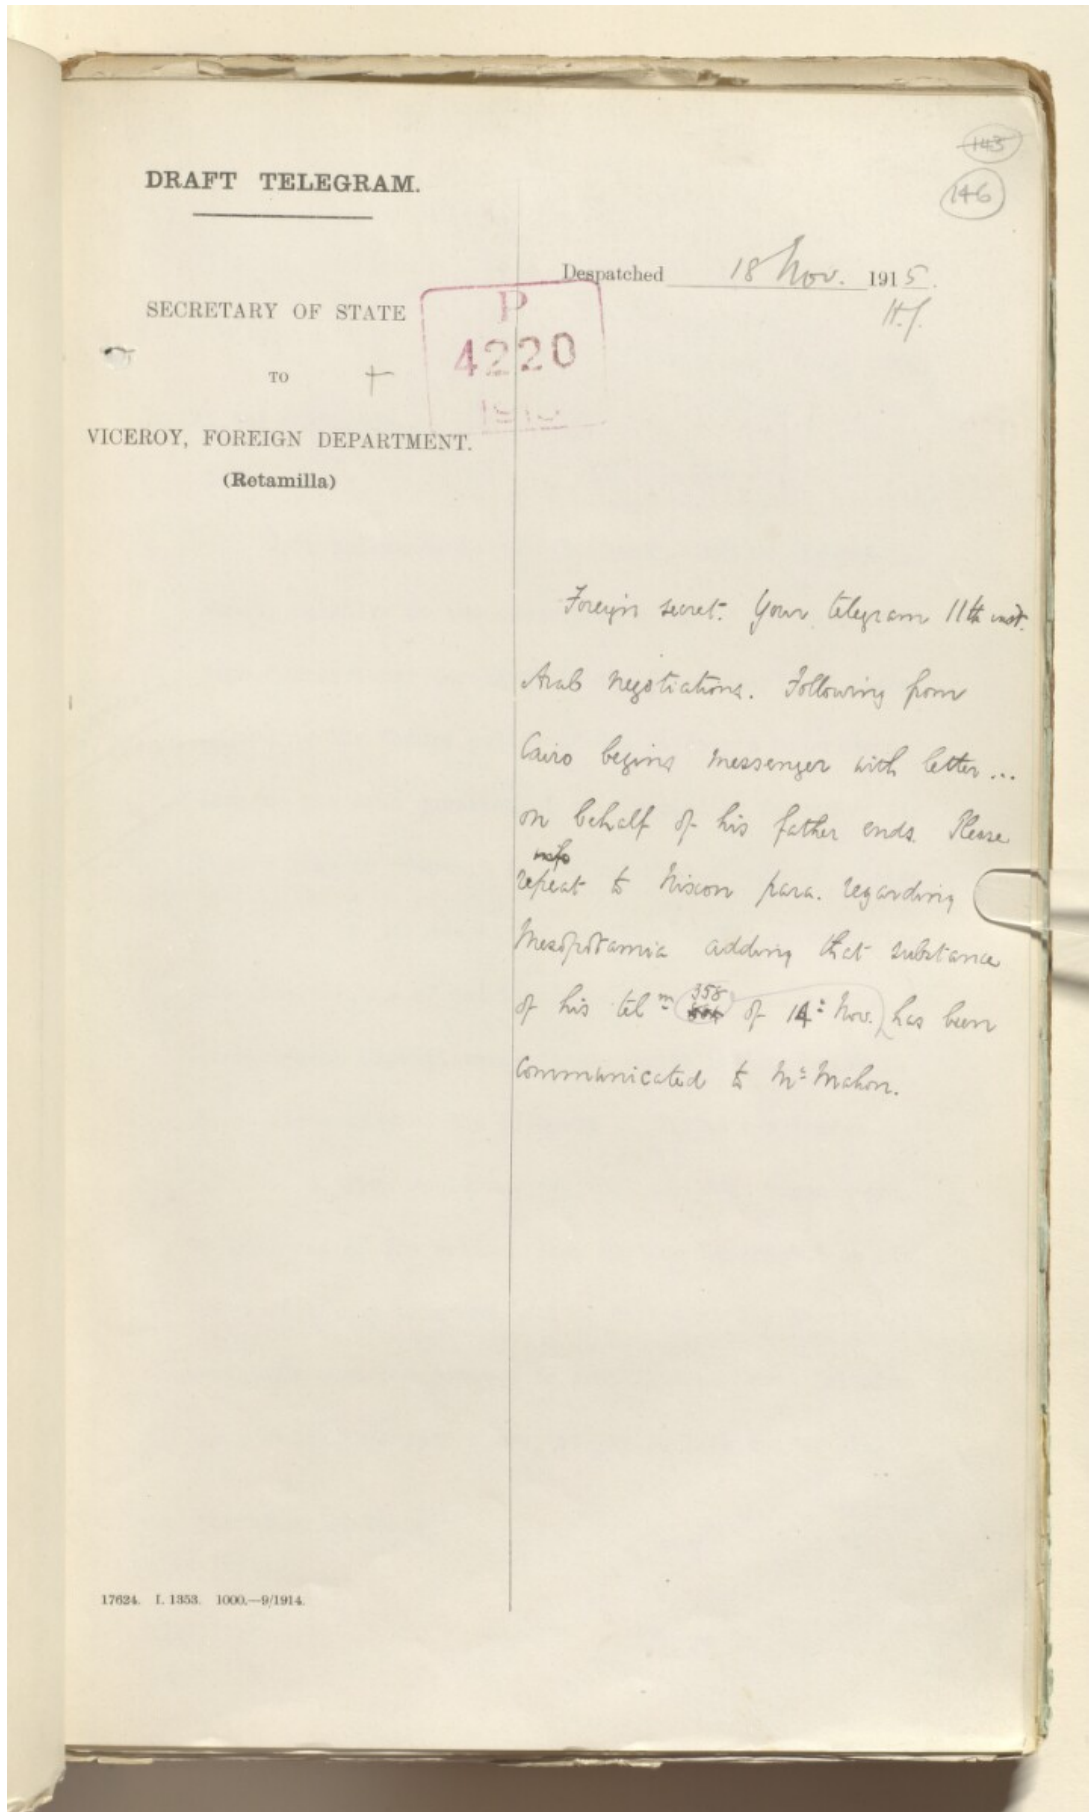 143
146
DRAFT TELEGRAM.
Despatched 18 Nov. 1915.
SECRETARY OF STATE
P
4220
TO
VICEROY, FOREIGN DEPARTMENT.
(Retamilla)
Foreign secret. Your telegram 11th inst.
Arab negotiations. Following from
Cairo begins messenger with letter ...
on behalf of his father ends. Please
repeat to Nixon para. regarding
Mesopotamia adding that substance
358
of his telm of 14: Nov. has been
communicated to Mc Mahon.
17624. I. 1353. 1000.—9/1914.